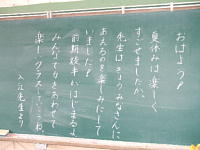 おはよう!
夏休みは楽しく
すごせましたか。
先生はきょうみなさんに
あえるのを楽しみにして
いました!
前期後半がはじまるよ
みんなで力をあわせて
楽しいクラスにしようね。
入江先生より